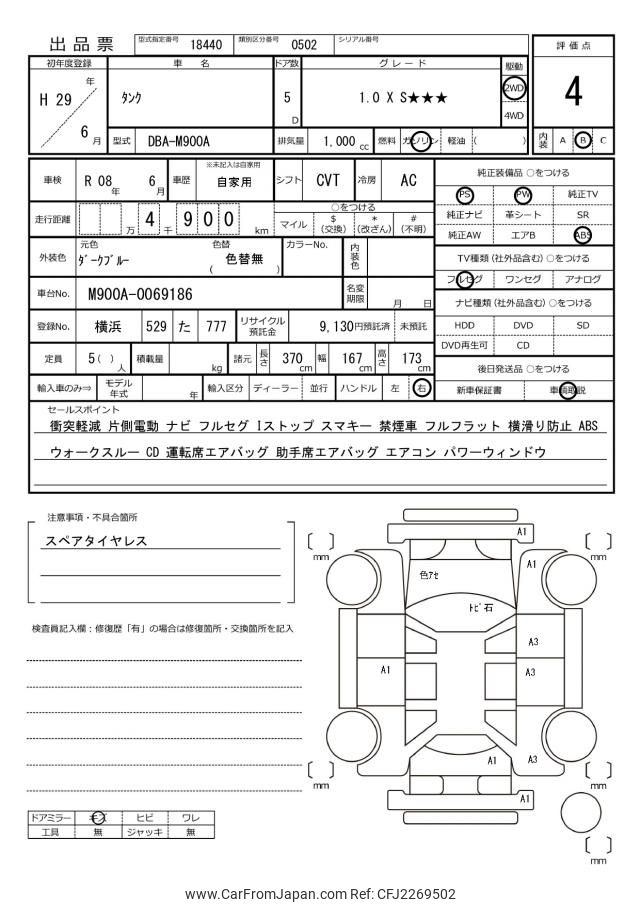 出品票 型式指定番号 18440 類別区分番号 0502 シリアル番号
評価点
4
初年度登録 車 名 ドア数 グレード 駆動
H 29 年 タンク 5 D 1.0 X S★★★ 2WD
6 月 4WD
型式 DBA-M900A 排気量 1,000 cc 燃料 ガソリン 軽油 ( )
内装 A B C
車検 R 08 年 6 月 車歴 ※未記入は自家用 自家用 シフト CVT 冷房 AC
走行距離 万 4 千 9 0 0 km
○をつける
マイル $ (交換) * (改ざん) # (不明)
外装色 元色 ﾀﾞｰｸﾌﾞﾙｰ 色替 ( 色替無 ) カラーNo. 内装色
車台No. M900A-0069186 名変期限 月 日
登録No. 横浜 529 た 777 リサイクル預託金 9,130円預託済 未預託
定員 5( ) 人 積載量 kg 諸元 長さ 370 cm 幅 167 cm 高さ 173 cm
輸入車のみ⇒ モデル年式 年 輸入区分 ディーラー 並行 ハンドル 左 右
純正装備品 ○をつける
PS PW 純正TV
純正ナビ 革シート SR
純正AW エアB ABS
TV種類 (社外品含む) ○をつける
フルセグ ワンセグ アナログ
ナビ種類 (社外品含む) ○をつける
HDD DVD SD
DVD再生可 CD
後日発送品 ○をつける
新車保証書 車輌取説
セールスポイント
衝突軽減 片側電動 ナビ フルセグ Iストップ スマキー 禁煙車 フルフラット 横滑り防止 ABS
ウォークスルー CD 運転席エアバッグ 助手席エアバッグ エアコン パワーウィンドウ
注意事項・不具合箇所
スペアタイヤレス
検査員記入欄：修復歴「有」の場合は修復箇所・交換箇所を記入
A1
mm mm
A1
色ｱｾ
ﾄﾋﾞ石
A3
A1 A3
A1 A3
mm mm
A1
mm
ドアミラー キズ ヒビ ワレ
工具 無 ジャッキ 無
www.CarFromJapan.com Ref: CFJ2269502